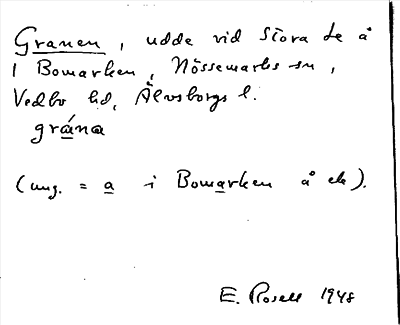 Granen, udde vid Stora Le å
i Bomarken, Nössemarks sn,
Vedbo hd, Älvsborgs l.
grána
(ung. = a i Bomarken å ek).
E. Rosell 1948